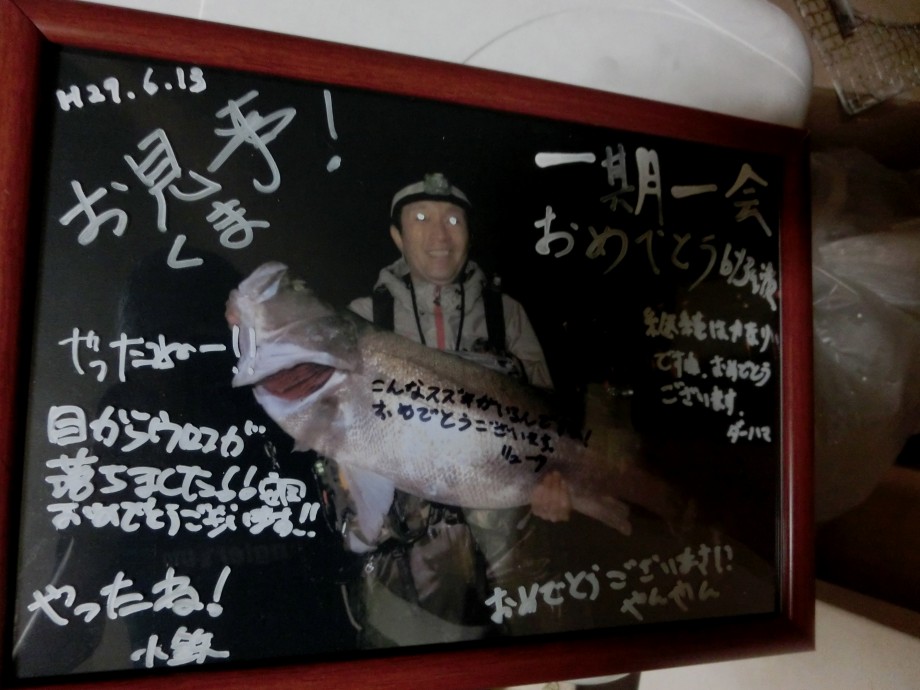 H29.6.13
お見事!
くま
一期一会
おめでとう
やったねー!!
ですね。おめでとう
ございます。
ダーハマ
こんなスズキがいるんですね!
おめでとうございます
リュープ
目からウロコが
落ちました!!
おめでとうございます!!
やったね!
小鉄
おめでとうございます!!
やんやん